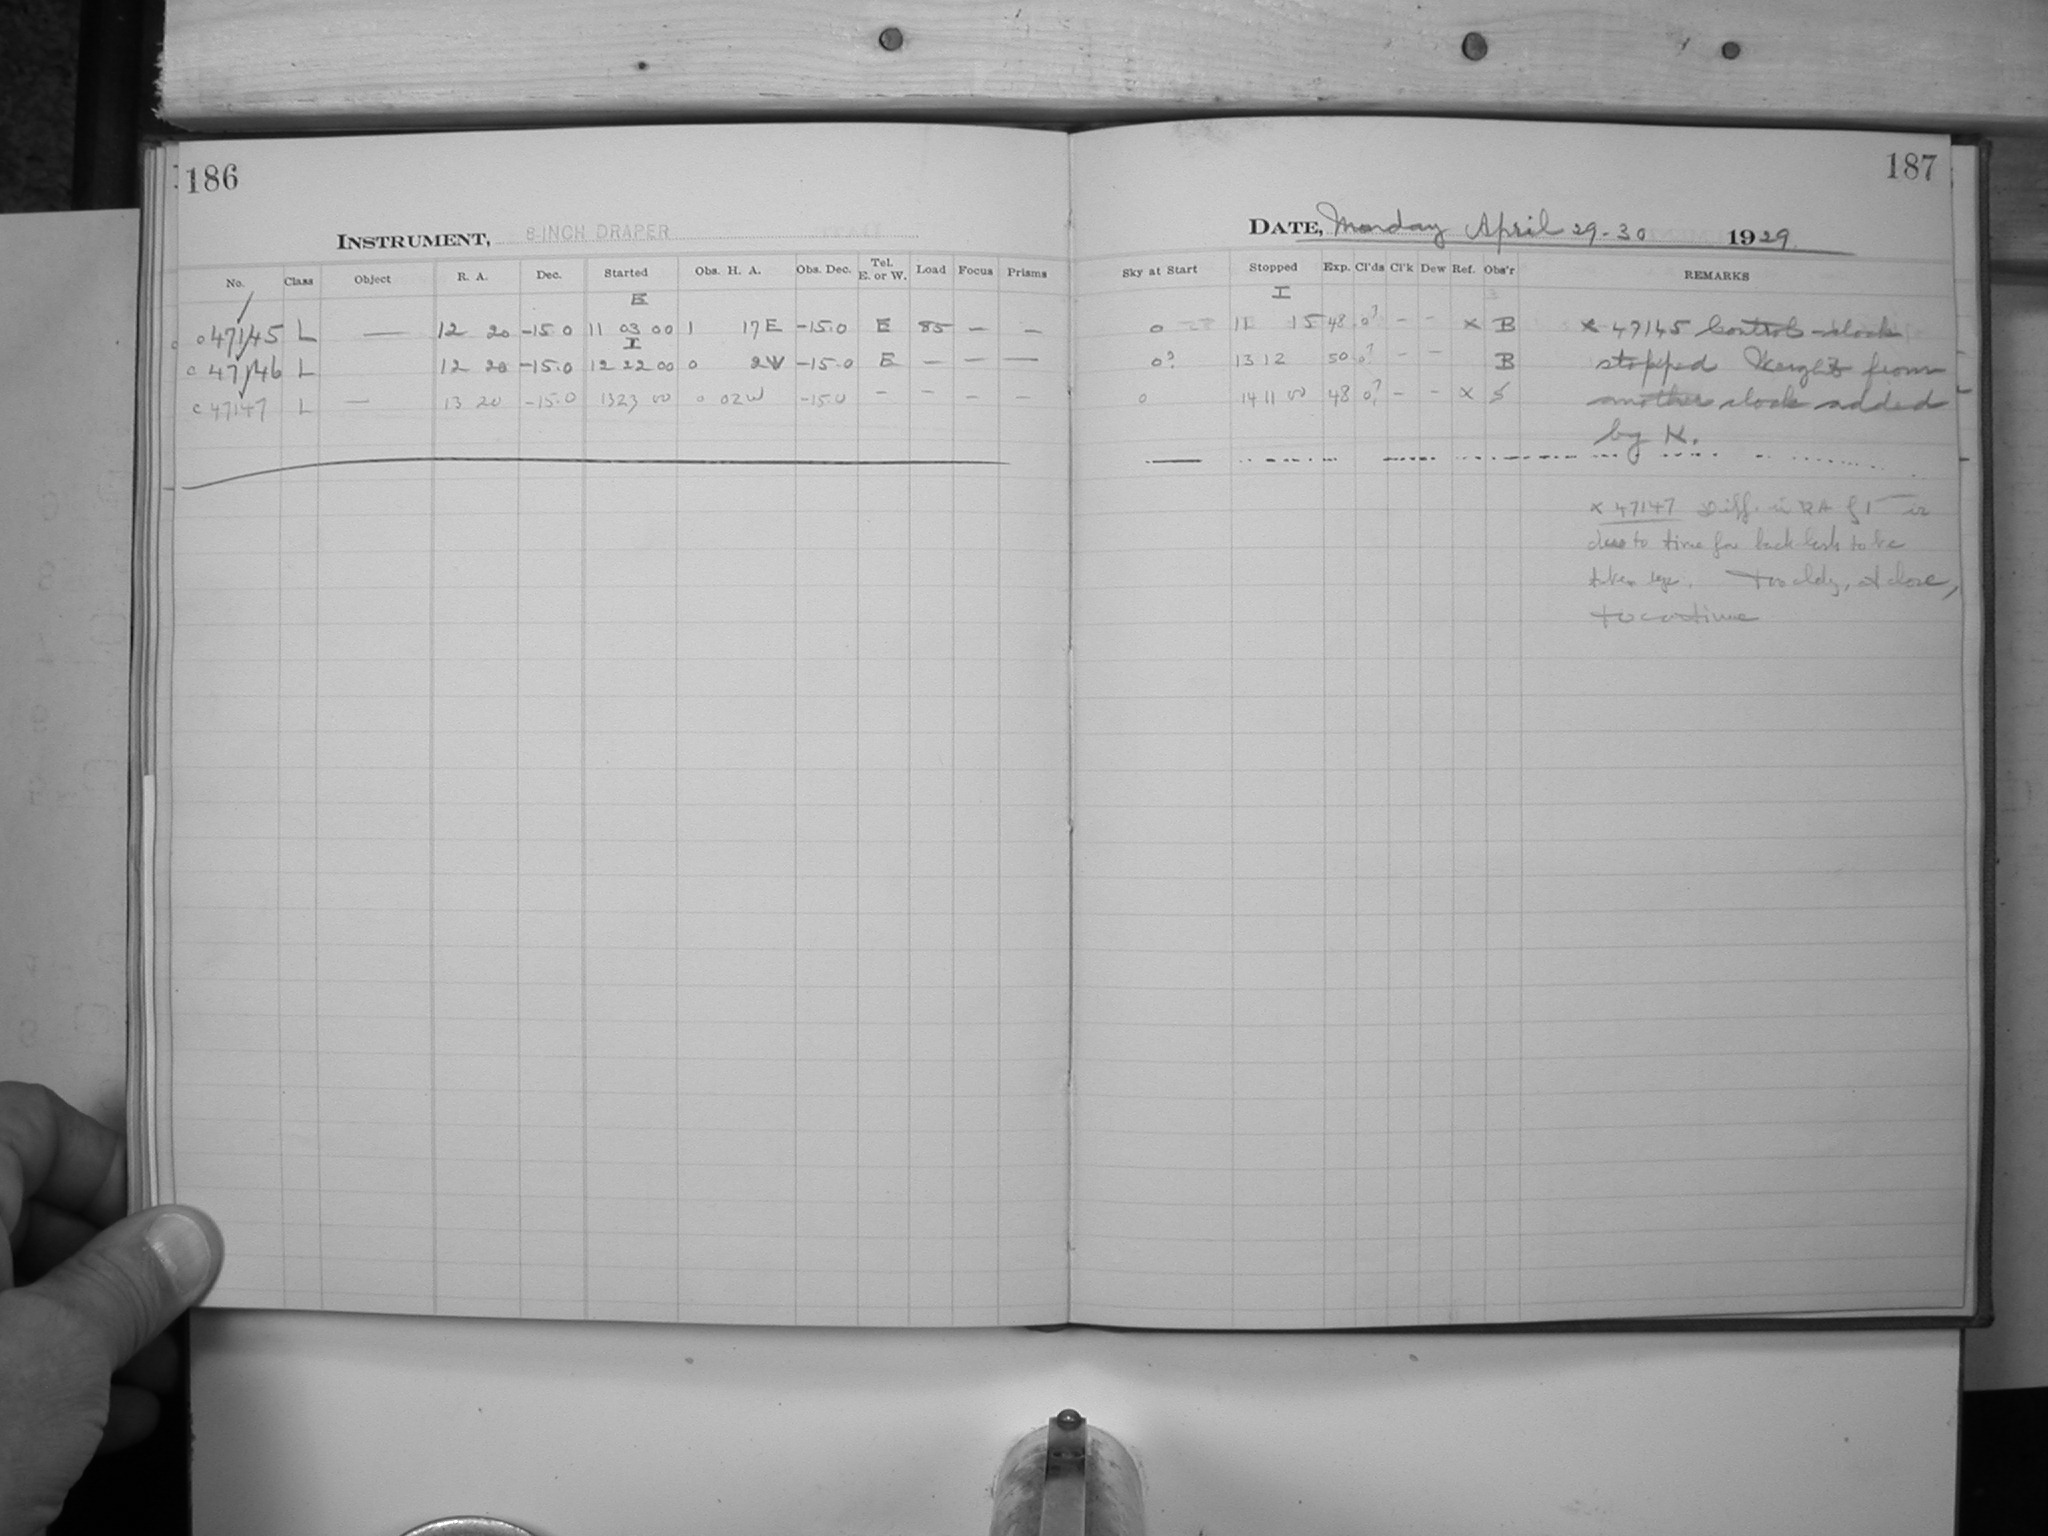 186
INSTRUMENT, 8-INCH DRAPER
No. Class Object R. A. Dec. Started Obs. H. A. Obs. Dec. Tel. E. or W. Load Focus Prisms
E
c 47145 L — 12 20 -15.0 11 03 00 1 17 E -15.0 E 85 — —
I
c 47146 L 12 20 -15.0 12 22 00 0 2 W -15.0 E — — —
c 47147 L — 13 20 -15.0 13 23 00 0 02 W -15.0 - - - -
187
DATE, Monday April 29-30 1929
Sky at Start Stopped Exp. Cl'ds Cl'k Dew Ref. Obs'r REMARKS
I
0 11 15 48 0? - - x B x 47145 Control clock
0? 13 12 50 0? - - B stopped Weight from
0 14 11 00 48 0? - - x S another clock added
by K.
x 47147 Diff. in RA is
due to time for back lash to be
taken up. Too cldy, at close,
to continue